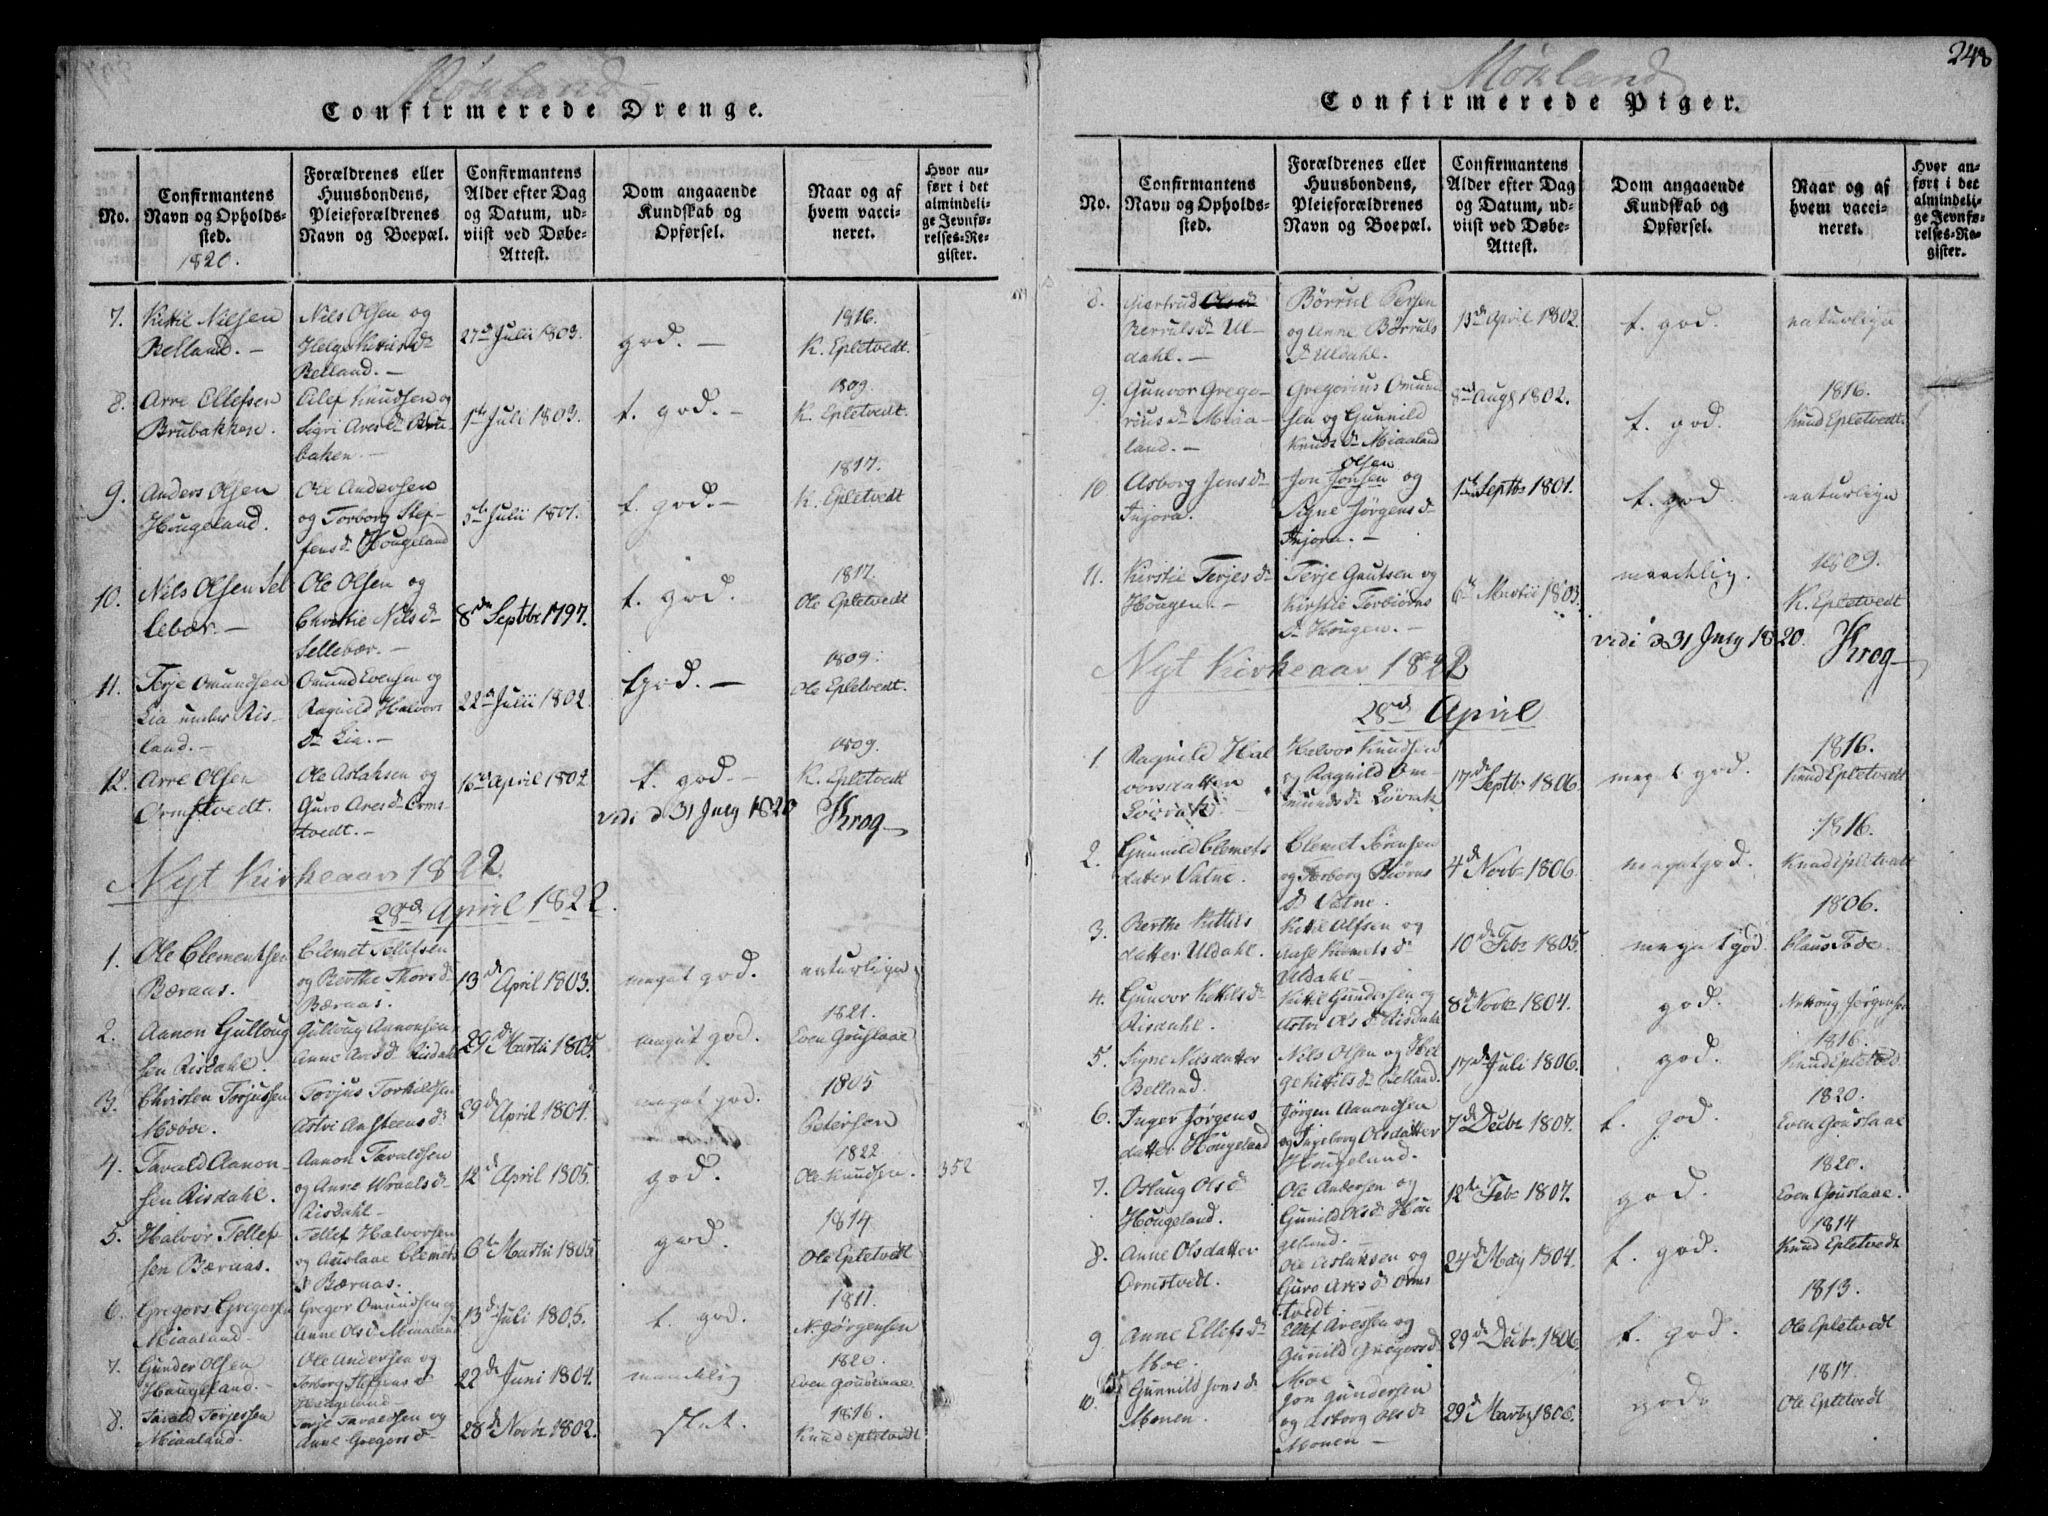 Møkland
Confirmerede Drenge.
No.
Confirmantens
Navn og Opholds-
sted.
1820.
Forældrenes eller
Huusbondens,
Pleieforældrenes
Navn og Boepæl.
Confirmantens
Alder efter Dag
og Datum, ud-
viist ved Døbe-
Attest.
Dom angaaende
Kundskab og
Opførsel.
Naar og af
hvem vacci-
neret.
Hvor an-
ført i det
almindeli-
ge Jevnfø-
relses-Re-
gister.
7.
Kittil Nilsen
Belland. -
Nils Olsen og
Belland. -
27de Julii 1803.
god. -
1816.
K. Epletvedt.
8.
Arre Ellefsen
Brubakken.
Eilef Knudsen og
Sigri Ares Dr Bru-
baken. -
1ste Juli 1803.
t. god. -
1809.
K. Epletvedt.
9.
Anders Olsen
Hougeland.
Ole Andersen
og Torborg Stef-
fens Dr Hougeland
5te Julii 1801.
t. god. -
1817.
K. Epletvedt
10.
Nils Olsen Sel
lebær. -
Ole Olsen og
Christie Nils Dr
Sellebær. -
8de Septbr 1797.
t. god.
1817
Ole Epletvedt
11.
Terje Omundsen
Lia under Ris-
land. -
Omund Evensen og
Ragnild Halvors
Dr Lia. -
22de Julii 1802.
t god. -
1809.
Ole Epletvedt.
12.
Arre Olsen
Ormstvedt.
Ole Aslaksen og
Guro Ares Dr Orms-
tvedt. -
April 1802
t. god. -
1809.
K. Epletvedt
vidi d 31 July 1820 Krog
Nyt Kirkeaar 1822.
28de April 1822.
1.
Ole Clementsen
Bæraas.
Clemet Tellefsen
og Berthe Thors Dr
Bæraas.
13de April 1803.
meget god.
naturlige
2.
Aanon Gulloug
sen Risdahl.
Gulloug Aanonsen
Anne Ars Dr Risdahl
29de Martii 1805.
meget god.
1821.
Even Gouslaae
3.
Christen Torjussen
Mæboe.
Torjus Torkildsen
Astri Ansteens Dr
29de April 1804.
meget god.
1805
Petersen
4.
Tarald Aanon-
sen Risdahl.
Aanon Taraldsen
og Anne Wraals Dr
Risdahl -
12de April 1805.
god.
1822
Ole Knudsen.
352
5.
Halvor Tellef
sen Bærnas.
Tellef Halvorsen
og Auslaae Clemets
Dr Bærnas.
6te Martii 1805
god.
1814
Ole Epletvedt
6.
Gregors Gregorsen
Miaaland
Gregor Omundsen og
Anne Ols Dr Miaaland
13de Juli 1805.
t. god.
1811.
N. Jörgensen
7.
Gunder Olsen
Hougeland. -
Ole Andersen og
Torborg Steffens Dr
Hougeland
22de Juni 1804.
maadelig
1820.
Even Gouslaae
8.
Tarald Terjessen
Miaaland.
Terje Taraldsen og
Anne Gregors Dr
28de Novbr 1802.
slet.
1816.
Knud Epletvedt
248
Møkland
Confirmerede Piger.
No.
Confirmantens
Navn og Opholds-
sted.
Forældrenes eller
Huusbondens,
Pleieforældrenes
Navn og Boepæl.
Confirmantens
Alder efter Dag
og Datum, ud-
viist ved Døbe-
Attest.
Dom angaaende
Kundskab og
Opførsel.
Naar og af
hvem vacci-
neret.
Hvor an-
ført i det
almindeli-
ge Jevnfø-
relses-Re-
gister.
8.
Giertrud
Berruls Dr Ul-
dahl. -
Börrul Persen
og Anne Börruls
Dr Uldahl.
13de April 1802.
t. god.
naturlige
9.
Gunvor Grego-
rius Dr Miaa-
land. -
Gregorius Omund
sen og Gunnild
Knuds Dr Miaaland
8de Aug 1802.
t. god.
1816.
Knud Epletvedt.
10
Asborg Jens Dr
Injora.
Olsen
Jon Jonsen og
Signe Jörgens Dr
Injora. -
1ste Septbr 1801.
t. god
naturlige
11.
Kirstie Terjes Dr
Hougen. -
Terje Gautsen og
Kirstie Torbiörns
Dr Hougen. -
6te Martii 1803.
maadelig.
1809.
K. Epletvedt
vidi d 31 July 1820. Krog
Nyt Kirkeaar 1822
28de April
1
Ragnild Hal
vorsdatter
Lövrak
Halvor Knudsen
og Ragnild Om-
munds Dr Lövrak
17de Septbr 1806.
meget god.
1816.
Knud Epletvedt
2.
Gunnild Clemets
datter Vatne.
Clemet Sörensen
og Torborg Biörns
Dr Vatne.
4de Novbr 1806.
meget god.
1816.
Knud Epletvedt
3.
Berthe Kittils
datter Uldahl.
Kitil Alfsen og
Aase Clemets Dr
Uldahl -
10de Febr 1805
meget god.
1806.
Claus Tode.
4.
Gunvor Kittils Dr
Risdahl.
Kitil Gundersen og
Astri Ols Dr Risdahl
8de Novbr 1804.
god.
Jörgensen
5.
Signe Nilsdatter
Belland.
Nils Olsen og Hel
ge Kittils Dr Belland.
17de Juli 1806.
god.
1816.
Knud Epletvedt
6.
Inger Jörgens
datter Hougeland
Jörgen Aanondsen
og Ingeborg Olsdatter
Hougeland.
7de Decbr 1807.
t. god.
1820.
Even Gouslaae
7.
Oslaug Ols Dr
Hougeland.
Ole Andersen og
Gunild Ols Dr Hou
geland.
12te Febr 1807.
god.
1820.
Even Gouslaae.
8.
Anne Olsdatter
Ormstvedt.
Ole Aslaksen og
Guro Ares Dr Orms
tvedt.
24de May 1804.
t. god.
1814
Knud Epletvedt
9
Anne Ellefs Dr
Moe.
Ellef Aressen og
Gunild Gregers Dr
Moe
29de Decbr 1806
t. god.
1813.
Ole Epletvedt
10.
Gunnild Jons Dr
Monen.
Jon Gundersen
og Asborg Ols Dr
Monen -
29de Martz 1806.
god.
1817.
Ole Epletvedt